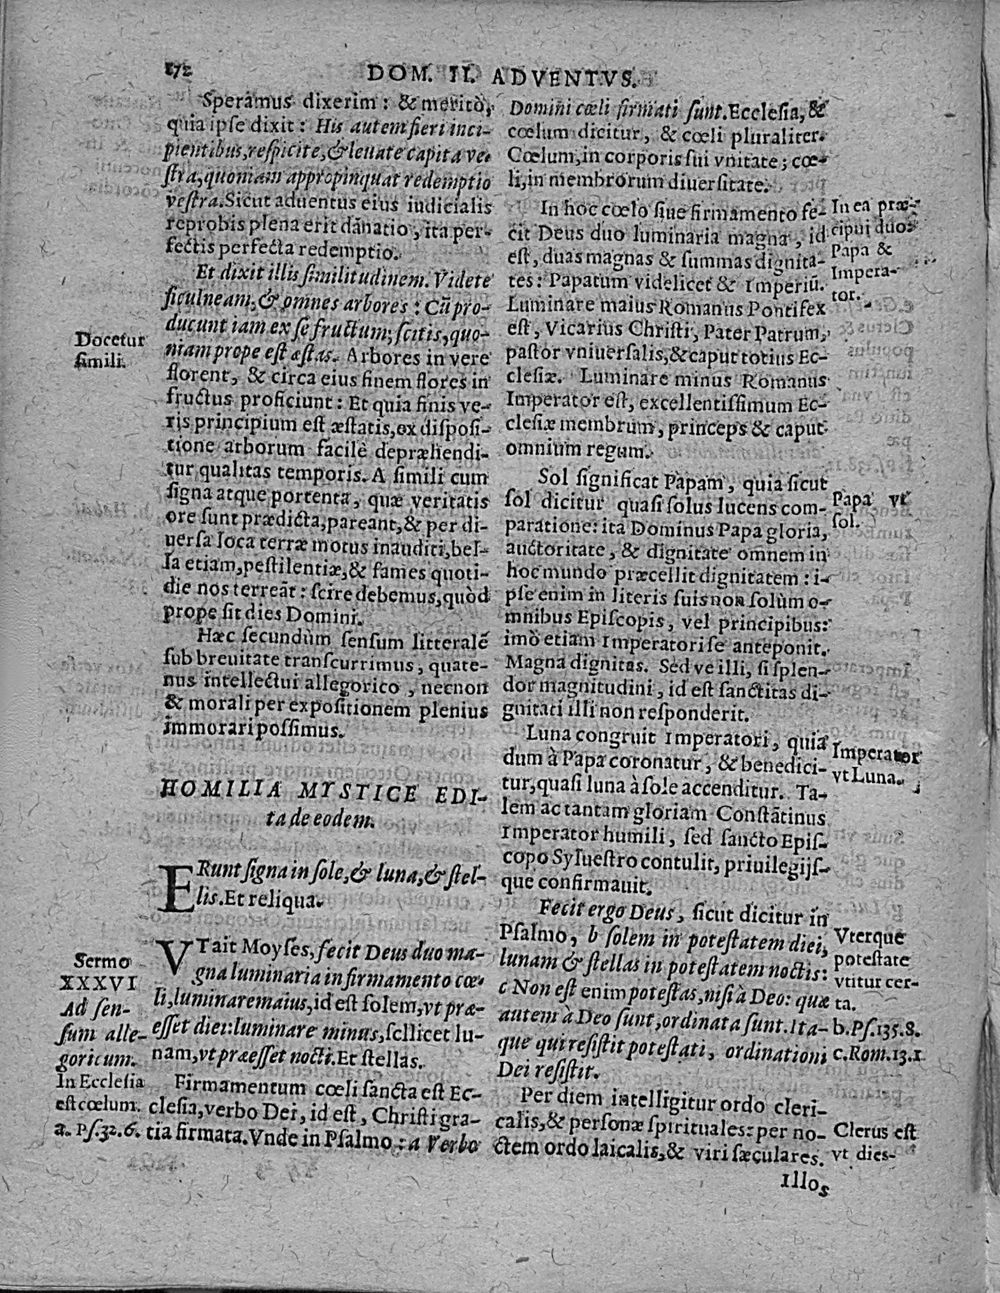 172
DOM. II. ADVENTVS.
Speramus dixerim: & meritò,
quia ipse dixit: His autem fieri inci-
pientibus, respicite, & leuate capita ve-
stra, quoniam appropinquat redemptio
vestra. Sicut aduentus eius iudicialis
reprobis plena erit dānatio, ita per-
fectis perfecta redemptio.
Et dixit illis similitudinem. Videte
ficulneam, & omnes arbores: Cū pro-
ducunt iam ex se fructum, scitis, quo-
niam prope est æstas. Arbores in vere
florent, & circa eius finem flores in
fructus proficiunt: Et quia finis ve-
ris principium est æstatis, ex disposi-
tione arborum facilè depræhendi-
tur qualitas temporis. A simili cum
signa atque portenta, quæ veritatis
ore sunt prædicta, pareant, & per di-
uersa loca terræ motus inauditi, bel-
la etiam, pestilentiæ, & fames quoti-
die nos terreāt: scire debemus, quòd
prope sit dies Domini.
Hæc secundùm sensum litteralē
sub breuitate transcurrimus, quate-
nus intellectui allegorico, necnon
& morali per expositionem plenius
immorari possimus.
Docetur
simili.
HOMILIA MYSTICE EDI-
ta de eodem.
ERunt signa in sole, & luna, & stel-
lis. Et reliqua.
VTait Moyses, fecit Deus duo ma-
gna luminaria in firmamento cœ-
li, luminare maius, id est solem, vt præ-
esset diei: luminare minus, scilicet lu-
nam, vt præesset nocti. Et stellas.
Firmamentum cœli sancta est Ec-
clesia, verbo Dei, id est, Christi gra-
tia firmata. Vnde in Psalmo: a Verbo
Sermo
XXXVI
Ad sen-
sum alle-
goricum.
In Ecclesia
est cœlum.
a. Ps. 32. 6.
Domini cœli firmati sunt. Ecclesia, &
cœlum dicitur, & cœli pluraliter.
Cœlum, in corporis sui vnitate; cœ-
li, in membrorum diuersitate.
In hoc cœlo siue firmamento fe-
cit Deus duo luminaria magna, id
est, duas magnas & summas dignita-
tes: Papatum videlicet & Imperiū.
Luminare maius Romanus Pontifex
est, Vicarius Christi, Pater Patrum,
pastor vniuersalis, & caput totius Ec-
clesiæ. Luminare minus Romanus
Imperator est, excellentissimum Ec-
clesiæ membrum, princeps & caput
omnium regum.
Sol significat Papam, quia sicut
sol dicitur quasi solus lucens com-
paratione: ita Dominus Papa gloria,
auctoritate, & dignitate omnem in
hoc mundo præcellit dignitatem: i-
pse enim in literis suis non solùm o-
mnibus Episcopis, vel principibus:
imò etiam Imperatori se anteponit.
Magna dignitas. Sed ve illi, si splen-
dor magnitudini, id est sanctitas di-
gnitati illi non responderit.
Luna congruit Imperatori, quia
dum à Papa coronatur, & benedici-
tur, quasi luna à sole accenditur. Ta-
lem ac tantam gloriam Constātinus
Imperator humili, sed sancto Epis-
copo Syluestro contulit, priuilegijs-
que confirmauit.
Fecit ergo Deus, sicut dicitur in
Psalmo, b solem in potestatem diei,
lunam & stellas in potestatem noctis:
c Non est enim potestas, nisi à Deo: quæ
autem à Deo sunt, ordinata sunt. Ita-
que qui resistit potestati, ordinationi
Dei resistit.
Per diem intelligitur ordo cleri-
calis, & personæ spirituales: per no-
ctem ordo laicalis, & viri sæculares.
In ea præ-
cipui duo
Papa &
Impera-
tor.
Papa vt
sol.
Imperator
vt Luna.
Vterque
potestate
vtitur cer-
ta.
b. Ps. 135. 8.
c. Rom. 13. 1
Clerus est
vt dies-
illos